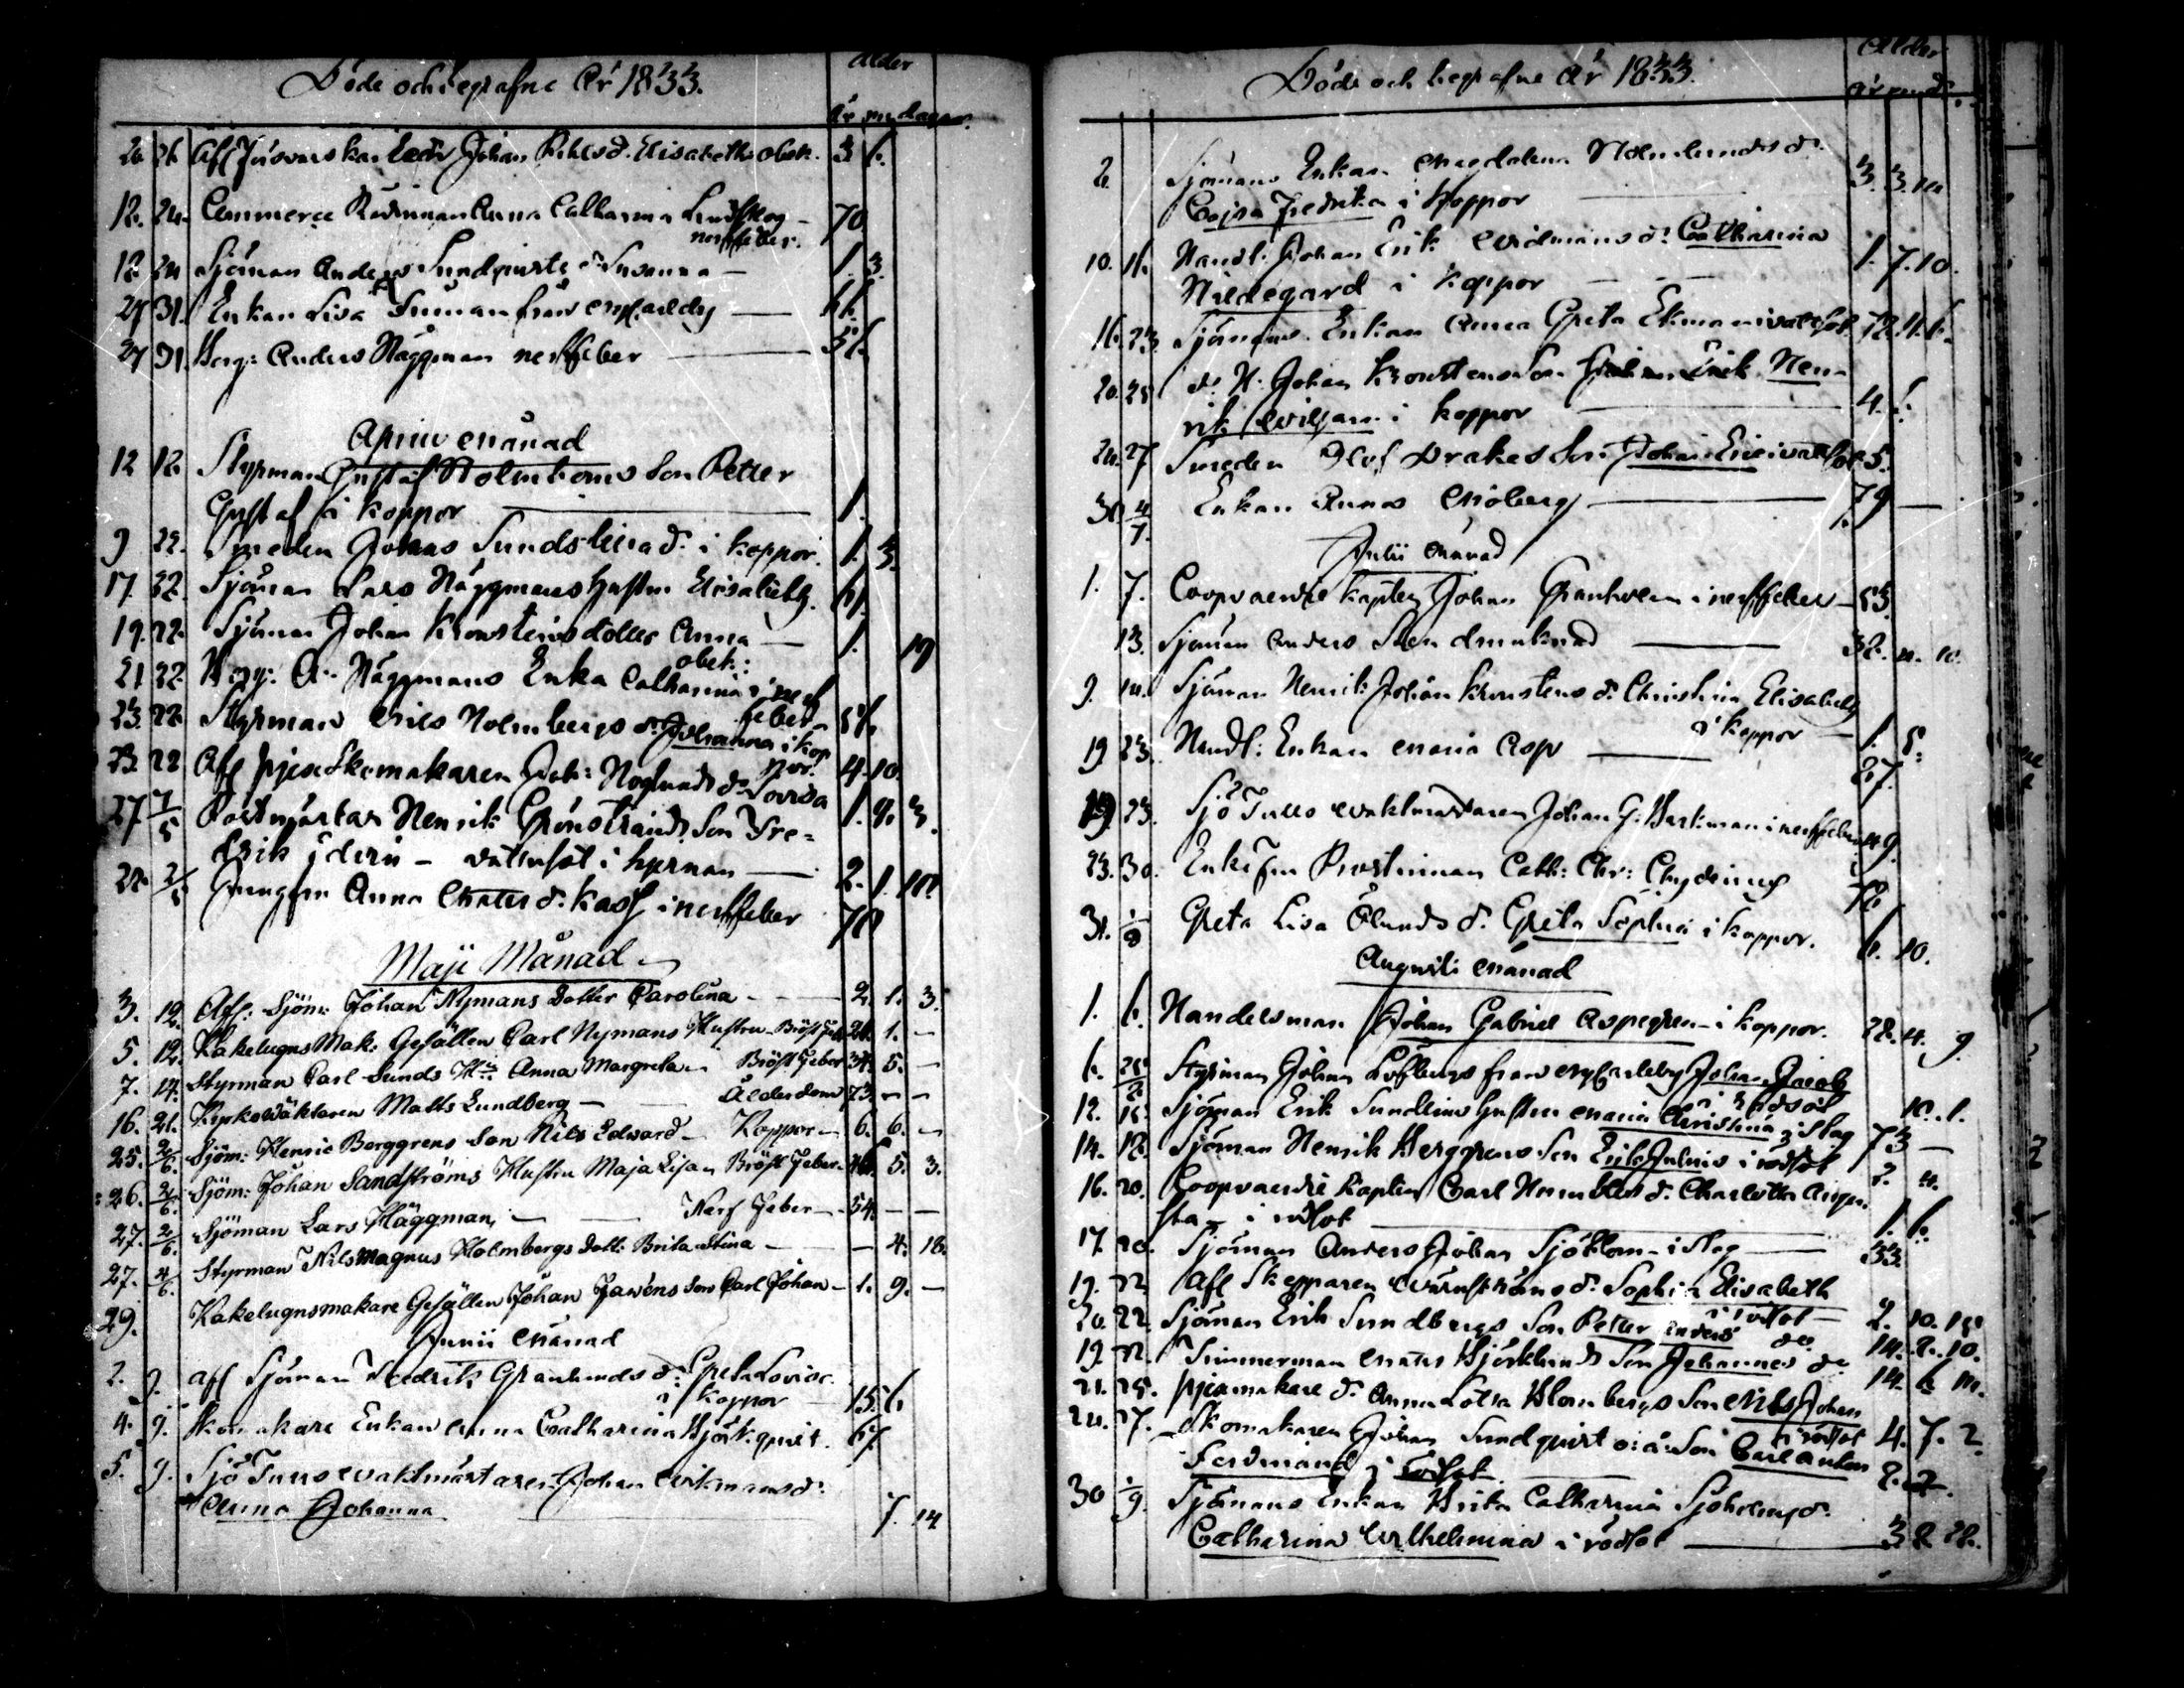 Döde och begrafne År 1833.
Ålder
år m dagar.
26 31. Afl. Johan d. Elisabeth obek. 3 6.
12. 24. Anna Catharina
nerffeber. 70
18 24 Sjöman Anders Sundqvists d. Susanna — 1. 3.
27 31. Enkan Lisa från — 66.
27 31. Borg: Anders Häggman nerffeber — 56.
April månad
12 12. Styrman Gustaf Holmboms Son Petter
Gustaf i koppor — 1
9 22. Smeden Johans d. i koppor. 1. 3.
17. 22. Sjöman Lars Häggmans hustru Elisabeth. 61.
19. 22. Sjöman Johan Kronstens dotter Anna — 1. 19
obek:
21 22 Borg: A. Häggmans Enka Catharina i nerf
feber 56.
23. 22 Styrman Nils Holmbergs d. Johanna i kop
por. 4. 10.
23. 22 Afl Skomakaren Joh: d. Lovisa 1. 9. 3.
27 7/5 Henrik Grönstrands Son Fre=
drik — vattusot i hjernan — 2. 1. 10.
28 2/5 Jungfru Anna d. i nerffeber 70
Maji Månad
3. 12. Afl: Sjöm: Johan Nymans dotter Carolina - - - 2. 1. 3.
5. 12. KakelugnsMak: Gesällen Carl Nymans Hustru - Bröst feb 26. 1. —
7. 14. Styrman Carl Lunds Hu Anna Margreta — Bröst feber 34. 5. —
16. 21. Kyrkowäktaren Matts Lundberg — Ålderdom 73. — —
25. 2/6. Sjöm: Henric Berggrens Son Nils Edward — Koppor — 6. 6. —
26. 2/6. Sjöm: Johan Sandströms Hustru Maja Lisa Bröst feber 5. 3.
27. 2/6. Sjöman Lars Häggman, — Nerf feber — 54. — —
27. 4/6. Styrman Nils Magnus Holmbergs dott: Brita Stina — — 4. 18.
29. Kakelugnsmakare Gesällen Johan Fawéns Son Carl Johan — 1. 9. —
Junii månad
2. 9. Afl Sjöman Fredrik Granlunds d. Greta Lovisa
i koppor 15. 6.
4. 9. Skomakare Enkan Anna Catharina Björkqvist. 67
5. 9. Sjö Tulls vaktmästaren Johan d.
Anna Johanna — 7. 14
Döde och begrafne År 1833.
Ålder
år m d.
2. Sjömans Enkan Magdalena Holmlunds d.
Cajsa Fredrika i koppor — 3. 3. 14
10. 16. Handl: Johan Erik Widmans d. Catharina
Hildegard i koppor — 1. 7. 10.
16. 23. Sjömans Enkan Anna Greta Ekman i vattsot. 72. 11. 6.
20. 25 d. H. Johan Kronstens Son Hen-
rik William i koppor — 4.
24. 27 Smeden Olof Drakes Son Johan Eric i vattsot 5.
30. 4/7. Enkan Annas Moberg — 79 —
Julii månad
1. 7. Coopvaerdie kapten Johan Granholm i nerffeber — 53.
13. Sjöman Anders — 32. 10.
9. 14. Sjöman Henrik Johan Kronstens d. Christina Elisabeth
i koppor — 1. 5.
19 23. Handl: Enkan Maria Asp — 27.
19. 23. Sjö Tulls vaktmästaren Johan G. Barkman i nerffeber 49.
23. 30. Enkefru Prostinnan Cath: Chr: Chydenius 72
31. 1/8 Greta Lisa Ölunds d. Greta Sophia i koppor. 6. 10.
Augusti månad
1. 6. Handelsman Johan Gabriel Aspegren — i koppor. 28. 4. 9
6. Styrman Johan Löfbergs från Johan Jacob
i rödsot 10. 1.
12. 18. Sjöman Erik Sundlins hustru Maria Christina i slag 73 —
14. 18. Sjöman Henrik Berggrens Son Erik Julius i rödsot 2. 4.
16. 20. Coopvaerdie kapten Carl d. Charlotta Augu
sta — i rödsot — 1. 6.
17. 20. Sjöman Anders Johan Sjöblom — i slag — 33.
19. 22 Afl Skepparen d. Sophia Elisabeth
i rödsot — 2. 10. 15
20. 22. Sjöman Erik Sundbergs Son Petter Anders do 14. 2. 10.
19. 22. Timmerman Mattes Björklunds Son Johannes do 14. 6.
21. 25. d. Anna Lotta Blombergs Son Nils Johan
i rödsot 4. 7. 2.
24. 27. Skomakaren Johan Sundqvist o: ä: Son Carl Anton
Ferdinand i rödsot — 2. 2.
30 1/9. Sjömans Enkan Brita Catharina Sjöholms d.
Catharina Wilhelmina i rödsot — 3 8 28.